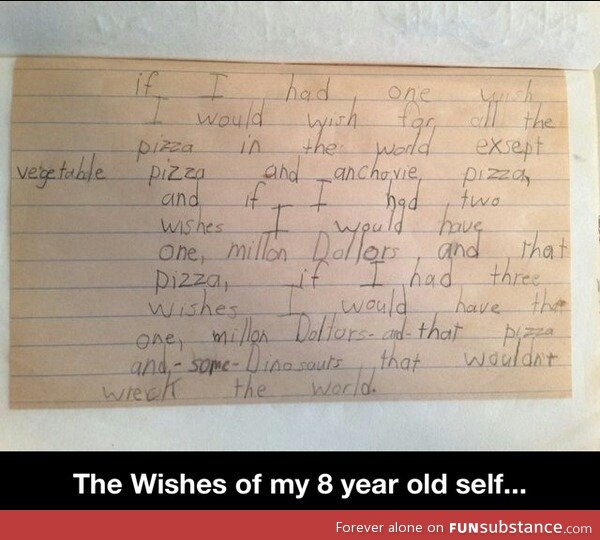 if I had one wish
I would wish for all the
pizza in the world exsept
vegetable pizza and anchovie pizza,
and if I had two
wishes I would have
one, millon Dollors and that
pizza, if I had three
wishes I would have that
one, millon Dollars-and-that pizza
and,-some-Dinosaurs that wouldn't
wreck the world.
The Wishes of my 8 year old self...
Forever alone on FUNsubstance.com